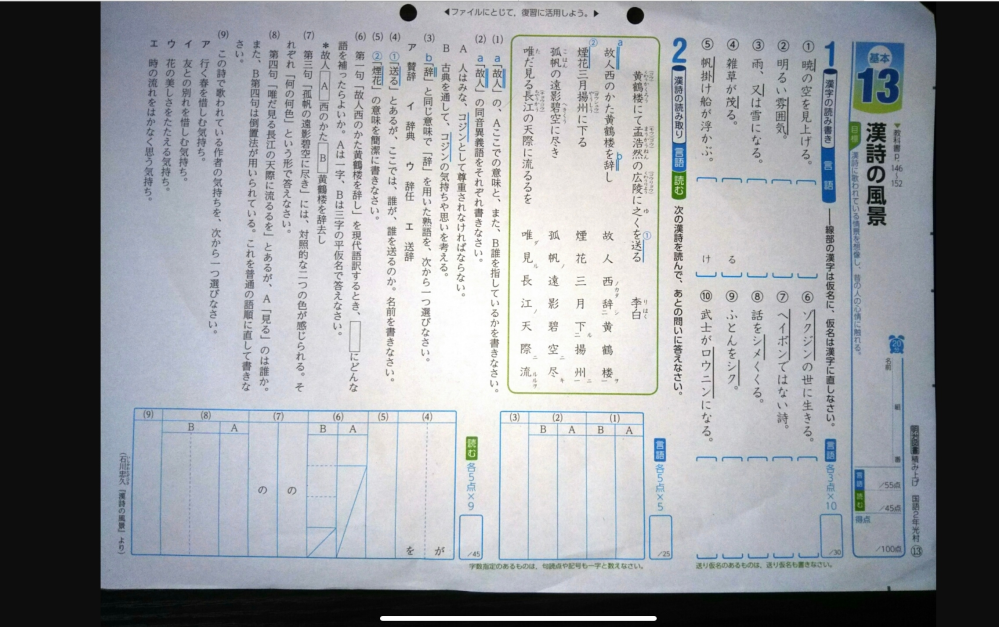 ◀ファイルにとじて，復習に活用しよう。▶
基本
13
漢詩の風景
▼教科書P.146〜152
目標 漢詩に歌われている情景を想像し，昔の人の心情に触れる。
積み上げ 国語2年光村 ⑬
名前
組
番
言語 /55点
読む /45点
得点 /100点
1 漢字の読み書き 言語 ――線部の漢字は仮名に，仮名は漢字に直しなさい。
各3点×10
/30
① 暁の空を見上げる。
② 明るい雰囲気。
③ 雨，又は雪になる。
④ 雑草が茂る。
る
⑤ 帆掛け船が浮かぶ。
け
⑥ ゾクジンの世に生きる。
⑦ ヘイボンではない詩。
⑧ 話をシメくくる。
⑨ ふとんをシク。
⑩ 武士がロウニンになる。
送り仮名のあるものは，送り仮名も書きなさい。
2 漢詩の読み取り 言語 読む 次の漢詩を読んで，あとの問いに答えなさい。
黄鶴楼にて孟浩然の広陵に之くを送る
①
李白
a 故人西のかた黄鶴楼を辞し b
② 煙花三月揚州に下る
孤帆の遠影碧空に尽き
唯だ見る長江の天際に流るるを
故人西辞黄鶴楼
煙花三月下揚州
孤帆遠影碧空尽
唯見長江天際流
(1) a「故人」の，Aここでの意味と，また，B誰を指しているかを書きなさい。
(2) a「故人」の同音異義語をそれぞれ書きなさい。
A 人はみな，コジンとして尊重されなければならない。
B 古典を通して，コジンの気持ちや思いを考える。
(3) b「辞」と同じ意味で「辞」を用いた熟語を，次から一つ選びなさい。
ア 賛辞 イ 辞典 ウ 辞任 エ 送辞
(4) ①「送る」とあるが，ここでは，誰が，誰を送るのか。名前を書きなさい。
(5) ②「煙花」の意味を簡潔に書きなさい。
(6) 第一句「故人西のかた黄鶴楼を辞し」を現代語訳するとき，□にどんな
語を補ったらよいか。Aは一字，Bは三字の平仮名で答えなさい。
＊故人 A 西のかた B 黄鶴楼を辞去し
(7) 第三句「孤帆の遠影碧空に尽き」には，対照的な二つの色が感じられる。そ
れぞれ「何の何色」という形で答えなさい。
(8) 第四句「唯だ見る長江の天際に流るるを」とあるが，A「見る」のは誰か。
また，B第四句は倒置法が用いられている。これを普通の語順に直して書きな
さい。
(9) この詩で歌われている作者の気持ちを，次から一つ選びなさい。
ア 行く春を惜しむ気持ち。
イ 友との別れを惜しむ気持ち。
ウ 花の美しさをたたえる気持ち。
エ 時の流れをはかなく思う気持ち。
言語 各5点×5
/25
(1) A
B
(2) A
B
(3)
字数指定のあるものは，句読点や記号も一字と数えなさい。
読む 各5点×9
/45
(4)
が
を
(5)
(6) A
B
(7)
の
の
(8) A
B
(9)
（石川忠久「漢詩の風景」より）